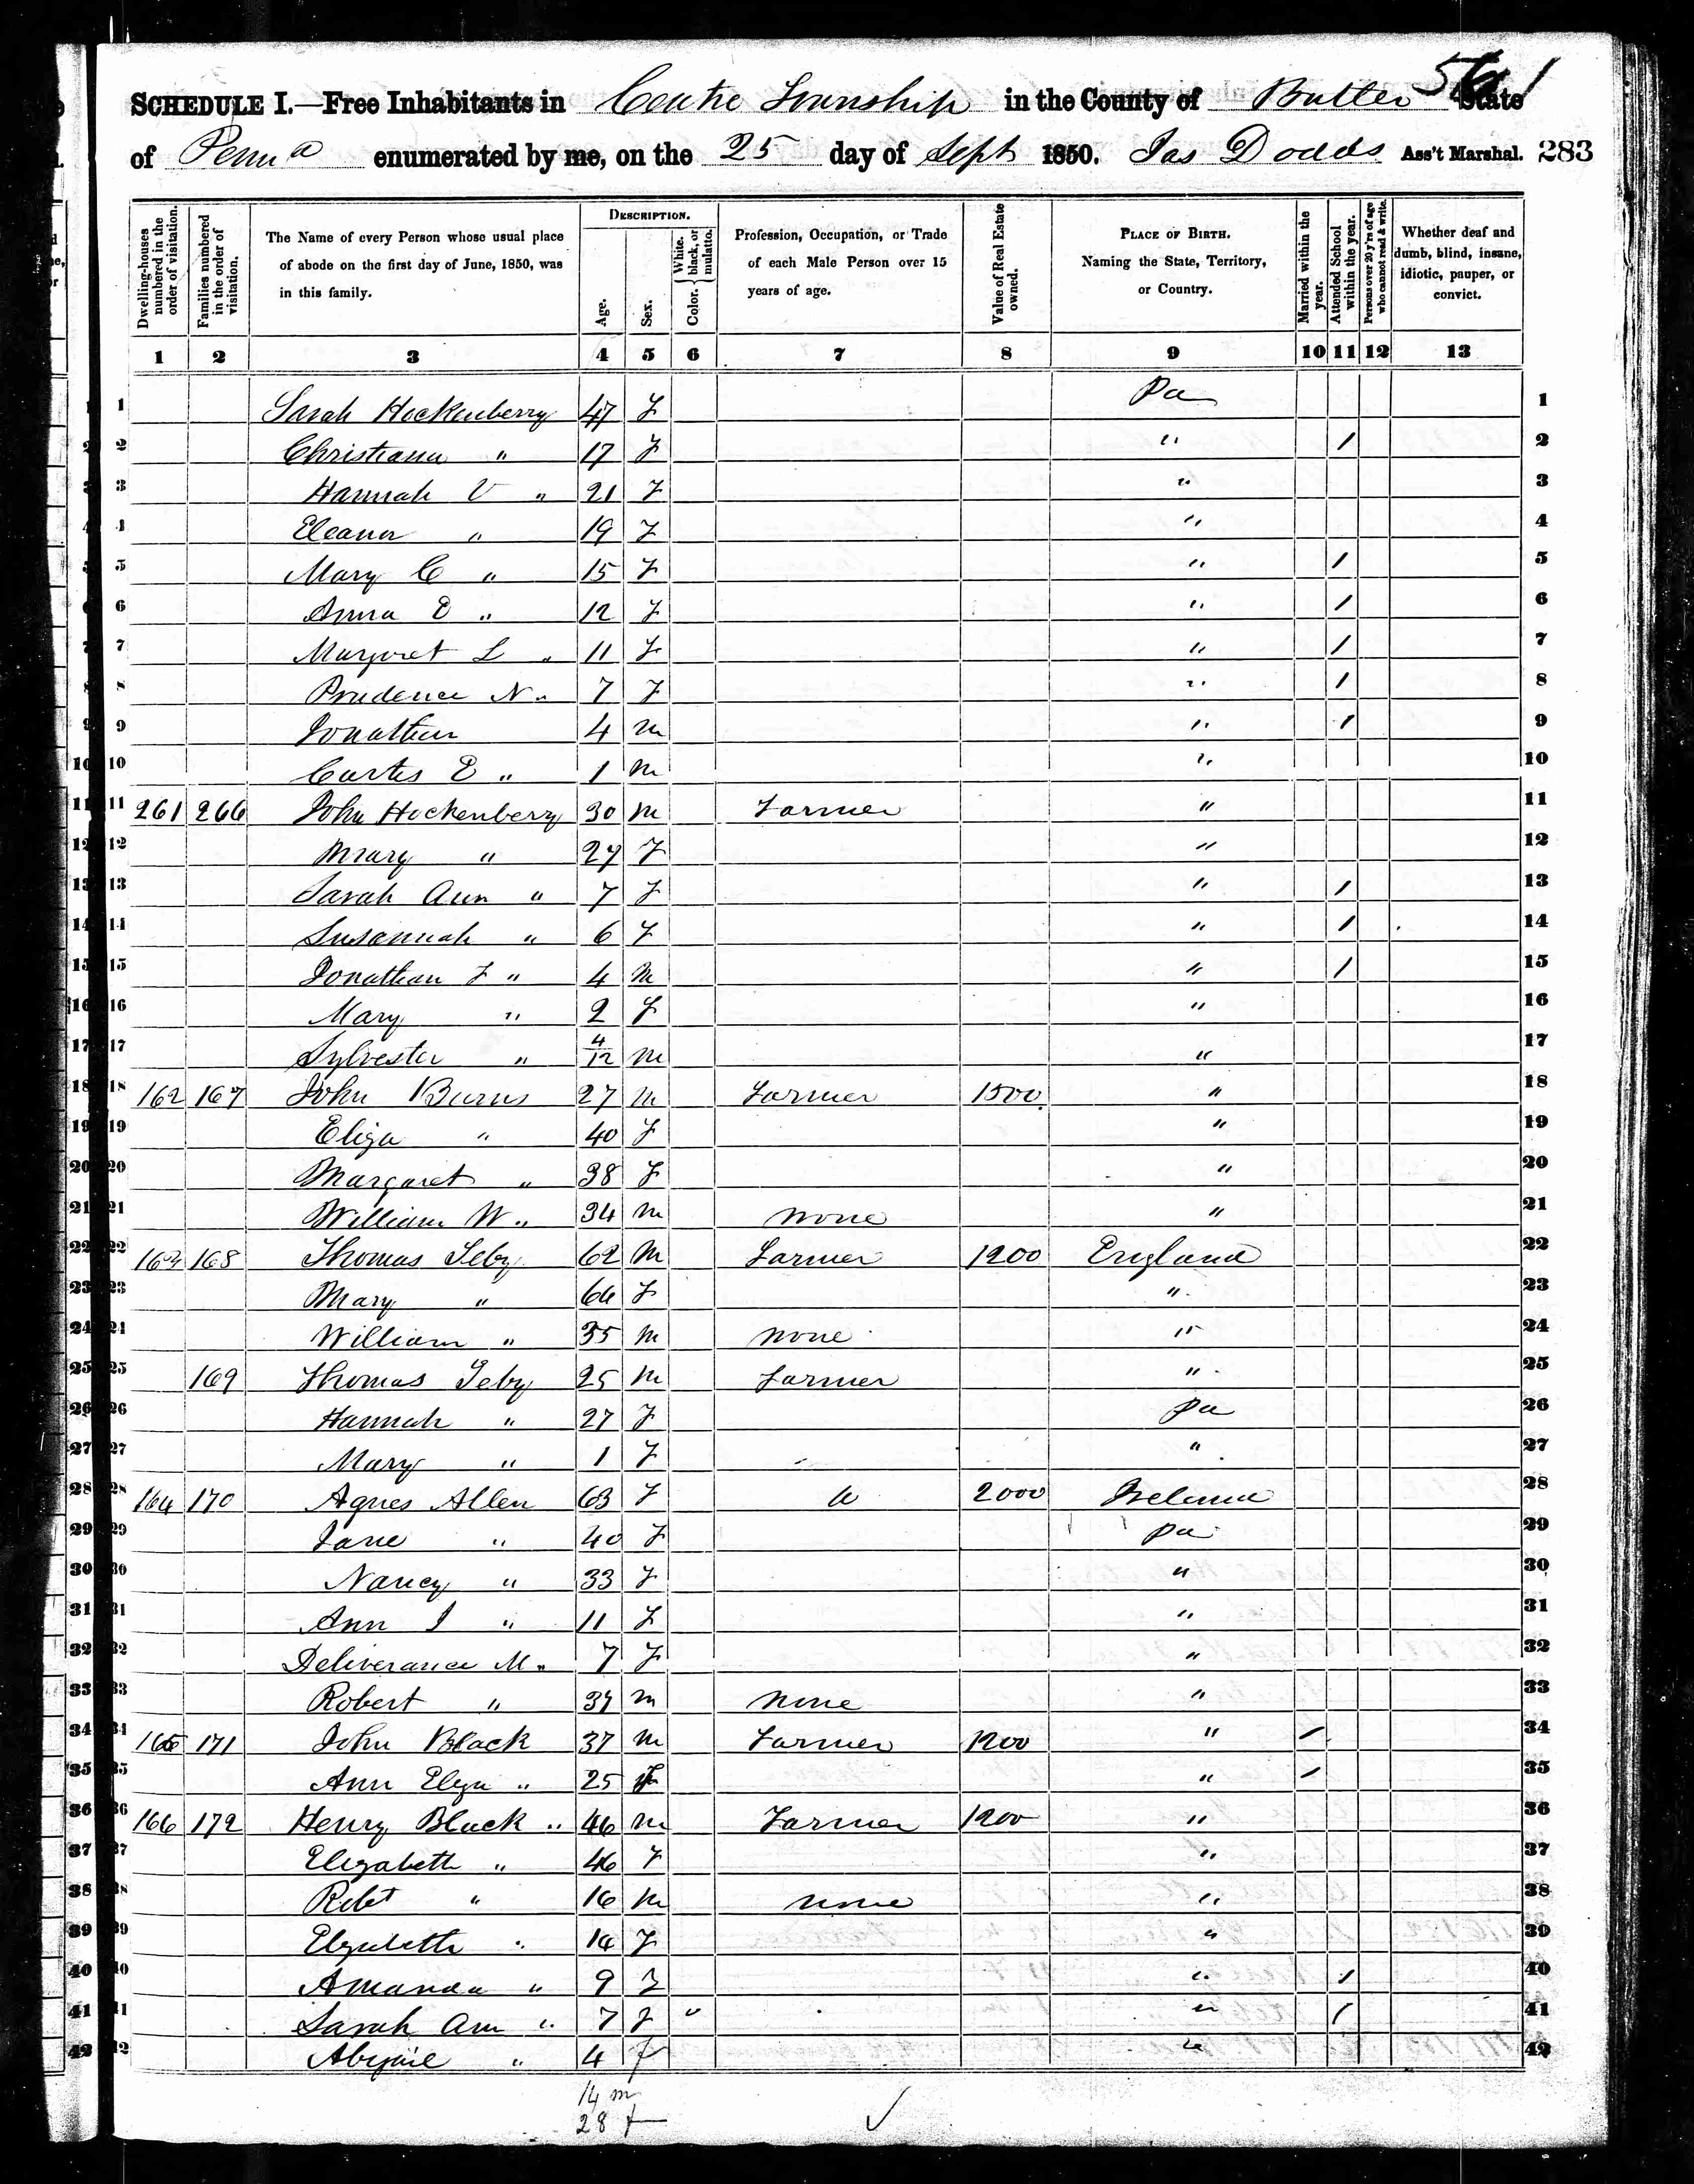 561
SCHEDULE I.—Free Inhabitants in Centre Township in the County of Butler State
of Penna enumerated by me, on the 25 day of Sept 1850. Jas Dodds Ass't Marshal. 283
Dwelling-houses numbered in the order of visitation.
Families numbered in the order of visitation.
The Name of every Person whose usual place of abode on the first day of June, 1850, was in this family.
DESCRIPTION.
Age.
Sex.
Color. { White, black, or mulatto.
Profession, Occupation, or Trade of each Male Person over 15 years of age.
Value of Real Estate owned.
PLACE OF BIRTH. Naming the State, Territory, or Country.
Married within the year.
Attended School within the year.
Persons over 20 y'rs of age who cannot read & write.
Whether deaf and dumb, blind, insane, idiotic, pauper, or convict.
1 2 3 4 5 6 7 8 9 10 11 12 13
1 Sarah Hockenberry 47 F Pa 1
2 Christiana " 17 F " / 2
3 Hannah V " 21 F " 3
4 Eleanor " 19 F " 4
5 Mary C " 15 F " / 5
6 Anna E " 12 F " / 6
7 Margret L " 11 F " / 7
8 Prudence N " 7 F " / 8
9 Jonathan 4 M " / 9
10 Curtes E " 1 M " 10
11 261 266 John Hockenberry 30 M Farmer " 11
12 Mary " 27 F " 12
13 Sarah Ann " 7 F " / 13
14 Susannah " 6 F " / 14
15 Jonathan F " 4 M " / 15
16 Mary " 2 F " 16
17 Sylvester " 4/12 M " 17
18 162 167 John Burns 27 M Farmer 1500 " 18
19 Eliza " 40 F " 19
20 Margaret " 38 F " 20
21 William W " 34 M None " 21
22 163 168 Thomas Seby 62 M Farmer 1200 England 22
23 Mary " 64 F " 23
24 William " 35 M None " 24
25 169 Thomas Seby 25 M Farmer " 25
26 Hannah " 27 F Pa 26
27 Mary " 1 F " 27
28 164 170 Agnes Allen 63 F 2000 Ireland 28
29 Jane " 40 F Pa 29
30 Nancy " 33 F " 30
31 Ann J " 11 F " 31
32 Deliverance M " 7 F " 32
33 Robert " 37 M None " 33
34 165 171 John Black 37 M Farmer 1200 " / 34
35 Ann Elza " 25 F " / 35
36 166 172 Henry Black " 46 M Farmer 1200 " 36
37 Elizabeth " 46 F " 37
38 Robt " 16 M None " 38
39 Elzabeth " 14 F " 39
40 Amanda " 9 F " / 40
41 Sarah Ann " 7 F " " / 41
42 Abigail " 4 F " 42
14 m
28 f